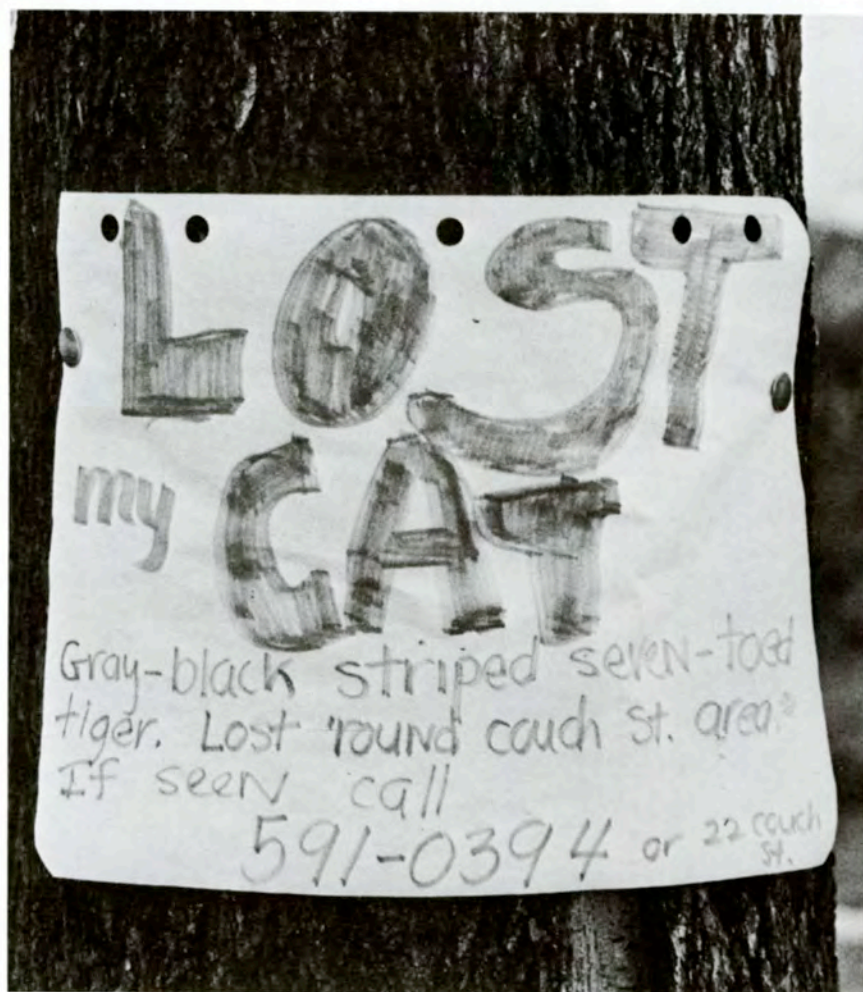 LOST
my CAT
Gray-black striped seven-toed
tiger. Lost 'round couch St. area.
If seen call
591-0394 or 22 couch
St.